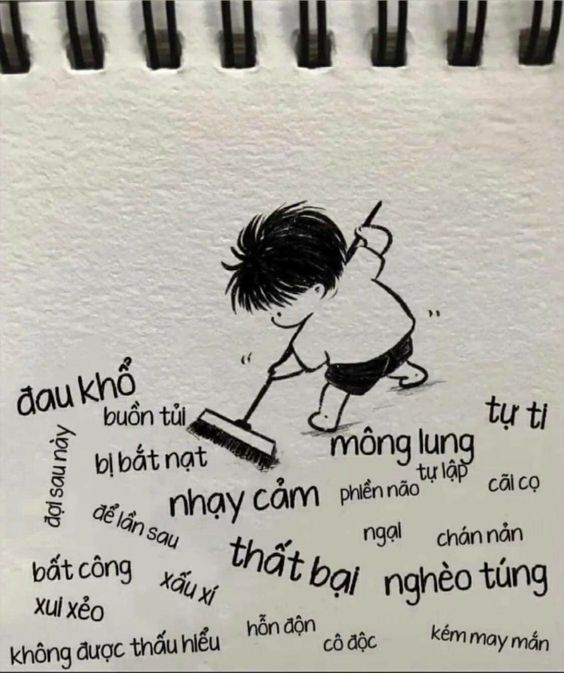 đau khổ
buồn tủi
tự ti
đợi sau này
bị bắt nạt
mông lung
nhạy cảm
phiền não
tự lập
cãi cọ
để lần sau
ngại
chán nản
bất công
xấu xí
thất bại
nghèo túng
xui xẻo
không được thấu hiểu
hỗn độn
cô độc
kém may mắn